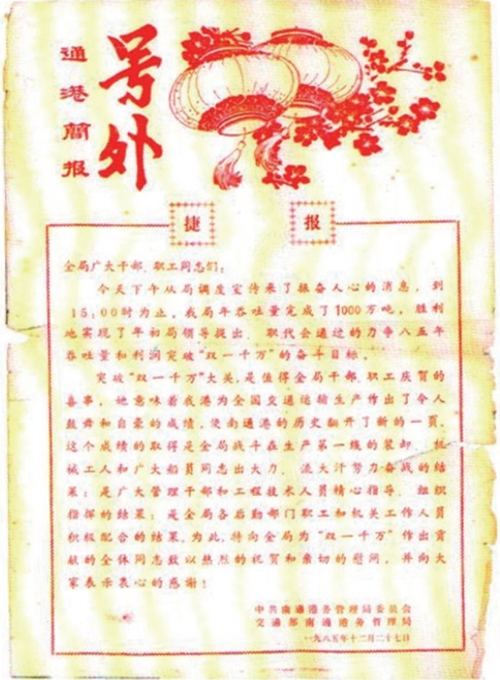 号外
通港简报
捷报
全局广大干部、职工同志们：
今天下午从局调度室传来了振奋人心的消息，到
15:00时为止，我局年吞吐量完成了1000万吨，胜利
地实现了年初局领导提出、职代会通过的力争八五年
吞吐量和利润突破“双一千万”的奋斗目标。
突破“双一千万”大关，是值得全局干部、职工庆贺的
喜事，她意味着我港为全国交通运输生产作出了令人
鼓舞和自豪的成绩，使南通港的历史翻开了新的一頁。
这个成绩的取得是全局战斗在生产第一线的装卸、机
械工人和广大船员同志出大力、流大汗努力奋战的结
果；是广大管理干部和工程技术人员精心指导、组织
指挥的结果；是全局各后勤部门职工和机关工作人员
积极配合的结果。为此，特向全局为“双一千万”作出贡
献的全体同志致以热烈的祝贺和亲切的慰问，并向大
家表示衷心的感谢！
中共南通港务管理局委员会
交通部南通港务管理局
一九八五年十二月二十七日